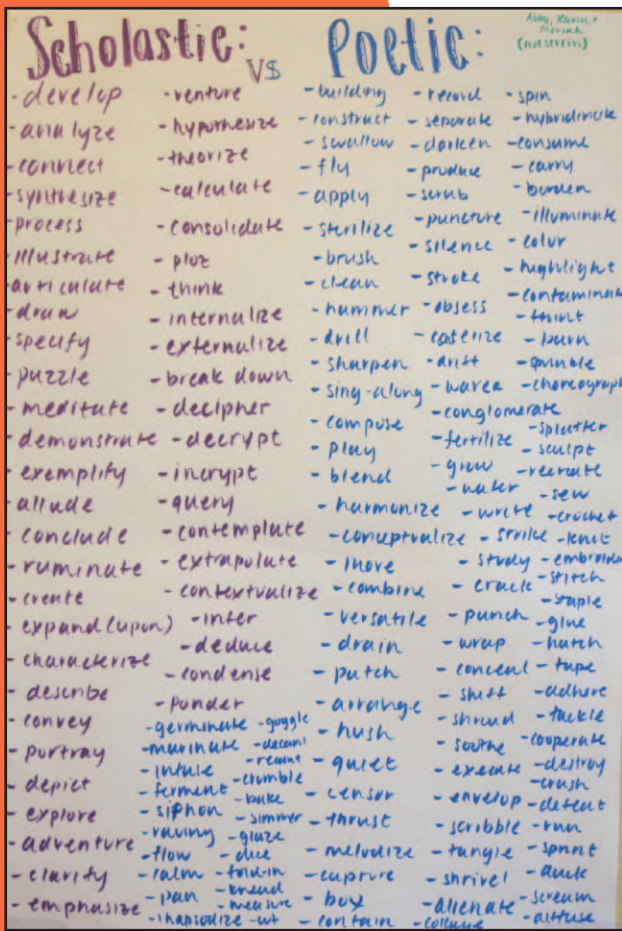 Scholastic: VS Poetic:
(not stevin)
- develop
- analyze
- connect
- synthesize
- process
- illustrate
- articulate
- draw
- specify
- puzzle
- meditate
- demonstrate
- exemplify
- allude
- conclude
- ruminate
- create
- expand (upon)
- characterize
- describe
- convey
- portray
- depict
- explore
- adventure
- clarify
- emphasize
- venture
- hypothesize
- theorize
- calculate
- consolidate
- plot
- think
- internalize
- externalize
- break down
- decipher
- decrypt
- incrypt
- query
- contemplate
- extrapolate
- contextualize
- infer
- deduce
- condense
- ponder
- germinate - guggle
- marinate - decant
- infuse - recant
- ferment - crumble
- siphon - bake
- raving - simmer
- flow - glaze
- calm - dice
- pan - fold-in
- rhapsodize - knead
- measure
- building
- construct
- swallow
- fly
- apply
- sterilize
- brush
- clean
- hammer
- drill
- sharpen
- sing-along
- compose
- play
- blend
- harmonize
- conceptualize
- move
- combine
- versatile
- drain
- patch
- arrange
- hush
- quiet
- censor
- thrust
- melodize
- capture
- box
- contain
- record
- separate
- darken
- produce
- scrub
- puncture
- silence
- stroke
- obsess
- drift
- conglomerate
- fertilize
- grow
- water
- write
- strike
- study
- crack
- punch
- wrap
- conceal
- shift
- shroud
- soothe
- execute
- envelop
- scribble
- tangle
- shrivel
- alienate
- collude
- spin
- consume
- carry
- burden
- illuminate
- color
- highlight
- contaminate
- burn
- sprinkle
- choreograph
- splatter
- sculpt
- recreate
- sew
- crochet
- knit
- stitch
- staple
- glue
- hatch
- tape
- adhere
- tackle
- cooperate
- destroy
- crush
- defeat
- run
- sprint
- duck
- scream
- diffuse